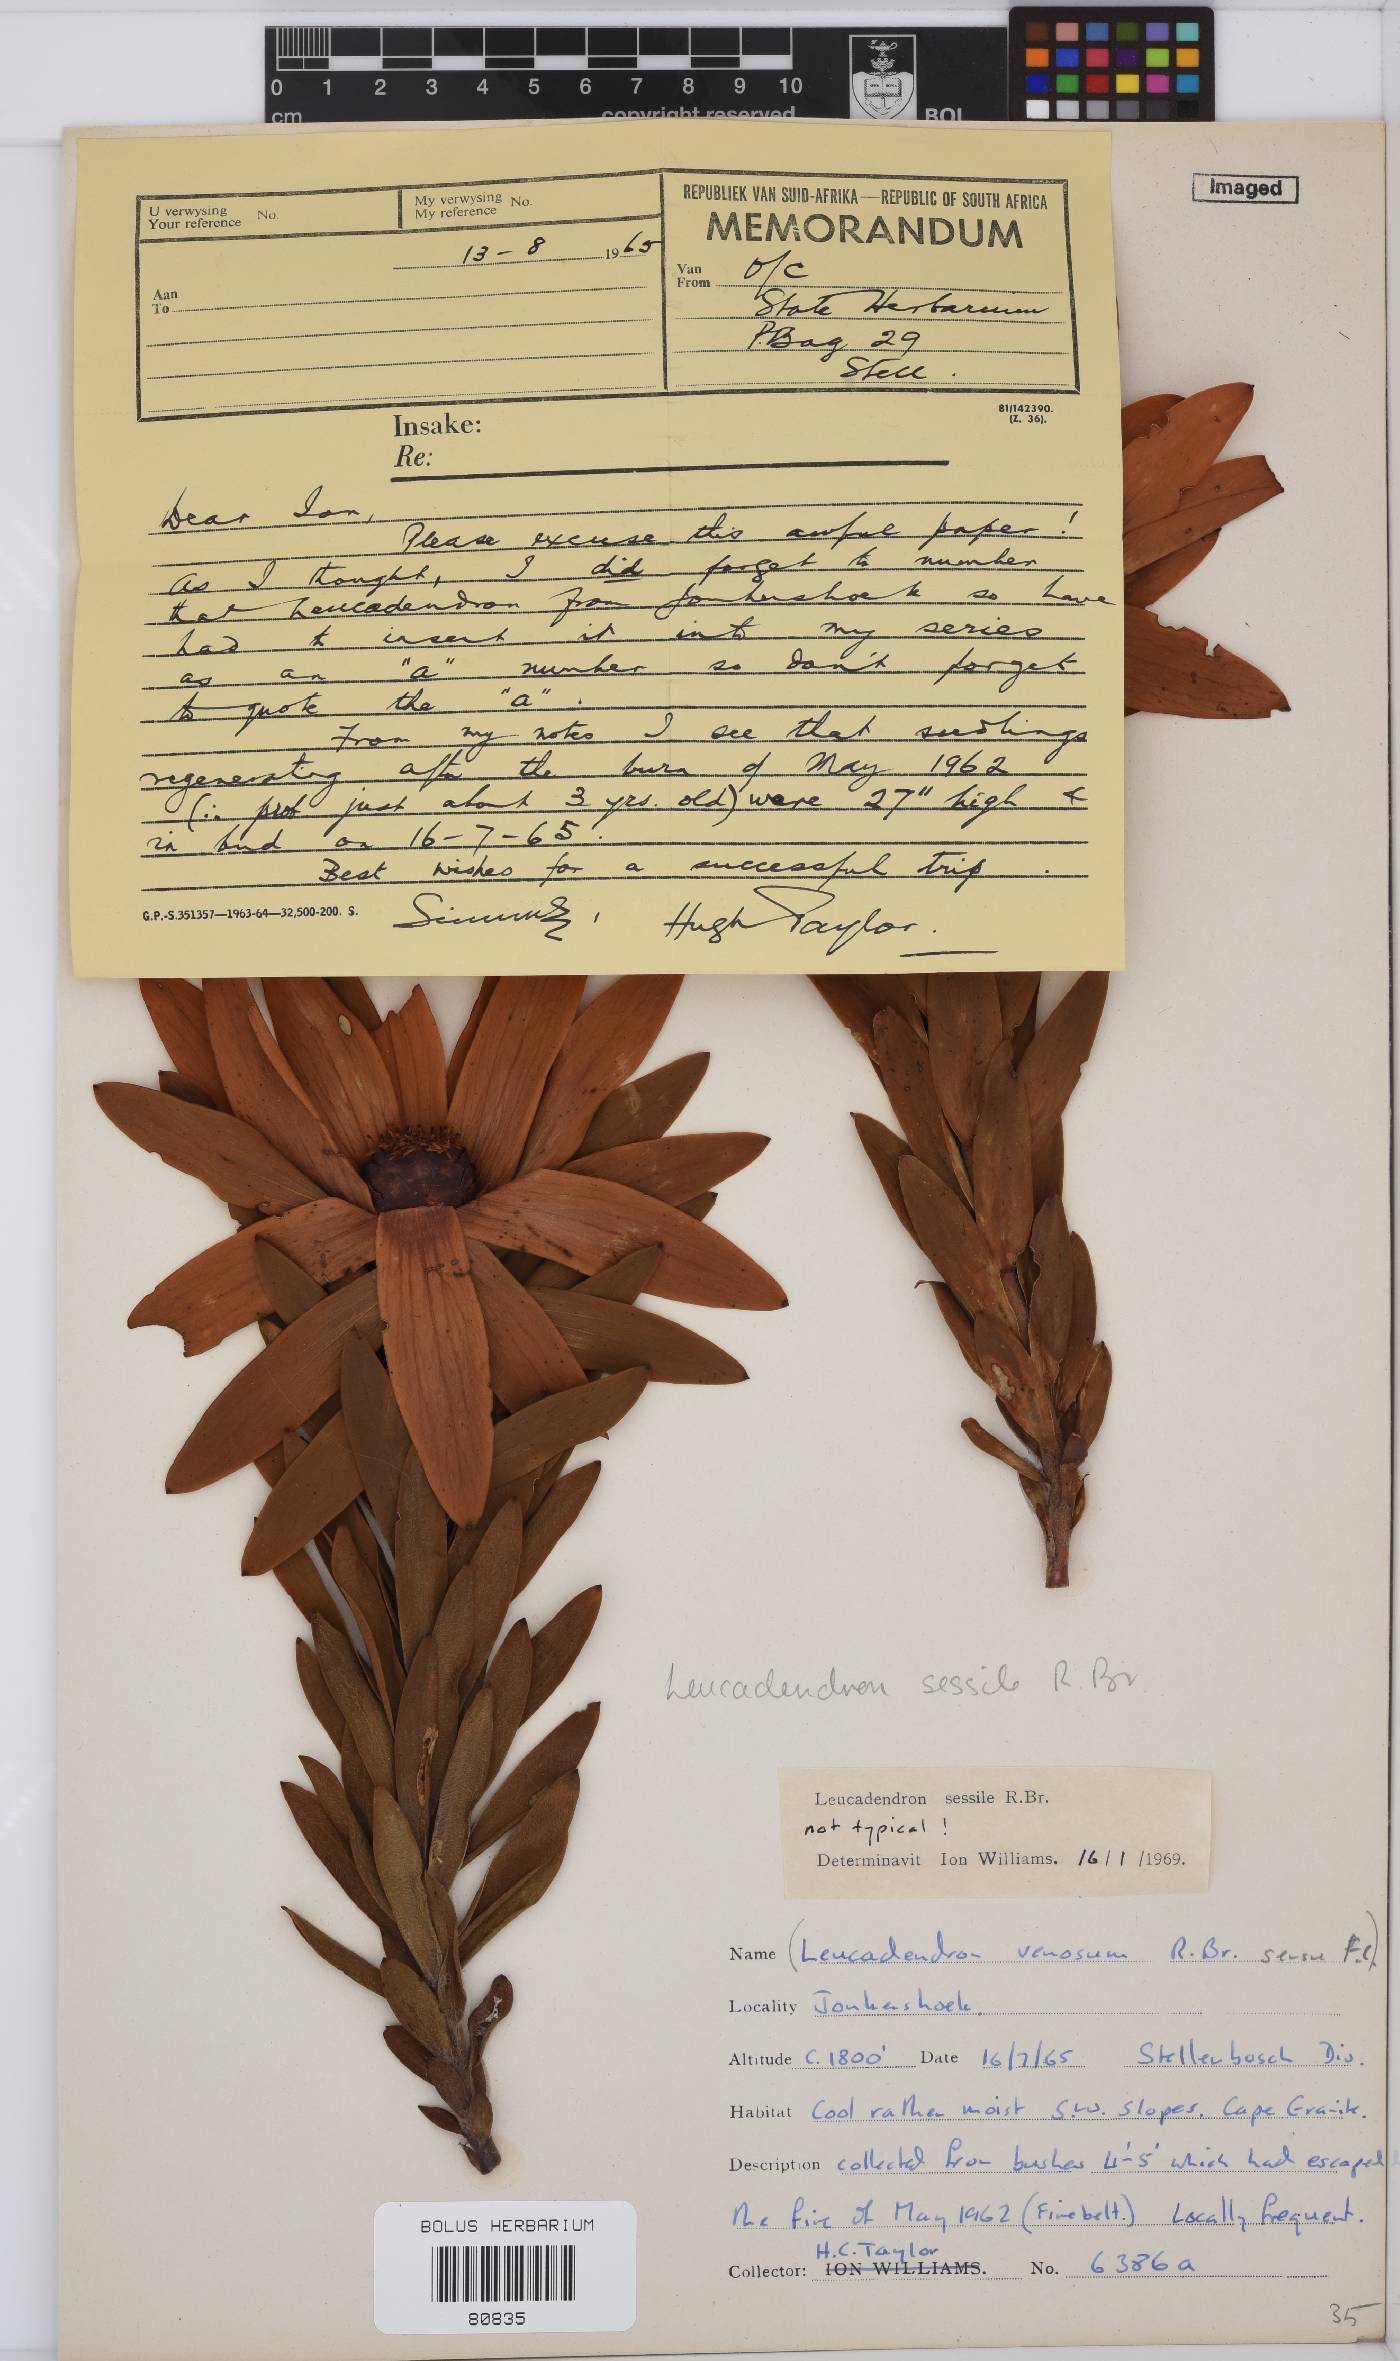 0 1 2 3 4 5 6 7 8 9 10
cm
copyright reserved
BOL
Imaged
U verwysing
Your reference No.
My verwysing
My reference No.
REPUBLIEK VAN SUID-AFRIKA—REPUBLIC OF SOUTH AFRICA
MEMORANDUM
13-8 1965
Aan
To
Van
From O/C
State Herbarium
P.Bag 29
Stell.
81/142390.
(Z. 36).
Insake:
Re:
Dear Ion,
Please excuse this awful paper!
As I thought, I did forget to number
that Leucadendron from Jonkershoek so have
had to insert it into my series
as an "a" number so don't forget
to quote the "a".
From my notes I see that seedlings
regenerating after the burn of May 1962
(∴ prob just about 3 yrs. old) were 27" high &
in bud on 16-7-65.
Best wishes for a successful trip.
G.P.-S.351357—1963-64—32,500-200. S.
Hugh Taylor.
Leucadendron sessile R.Br.
Leucadendron sessile R.Br.
not typical!
Determinavit Ion Williams. 16/1/1969.
Name (Leucadendron venosum R.Br. sensu F.C.)
Locality Jonkershoek.
Altitude C.1800' Date 16/7/65 Stellenbosch Div.
Habitat Cool rather moist S.W. slopes. Cape Granite.
Description collected from bushes 4'-5' which had escaped
the fire of May 1962 (Firebelt.) Locally frequent.
H.C.Taylor
Collector: ION WILLIAMS. No. 6386a
BOLUS HERBARIUM
80835
35